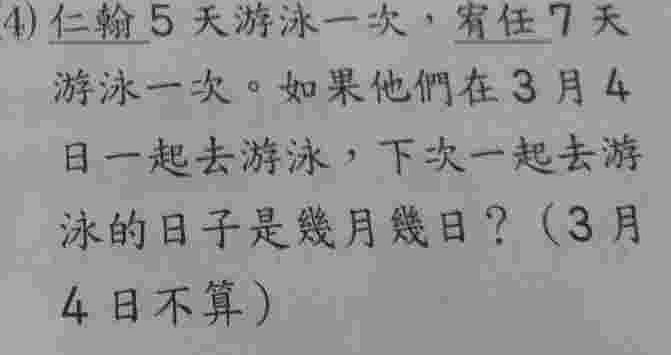 (4) 仁翰5天游泳一次，宥任7天
游泳一次。如果他們在3月4
日一起去游泳，下次一起去游
泳的日子是幾月幾日？（3月
4日不算）